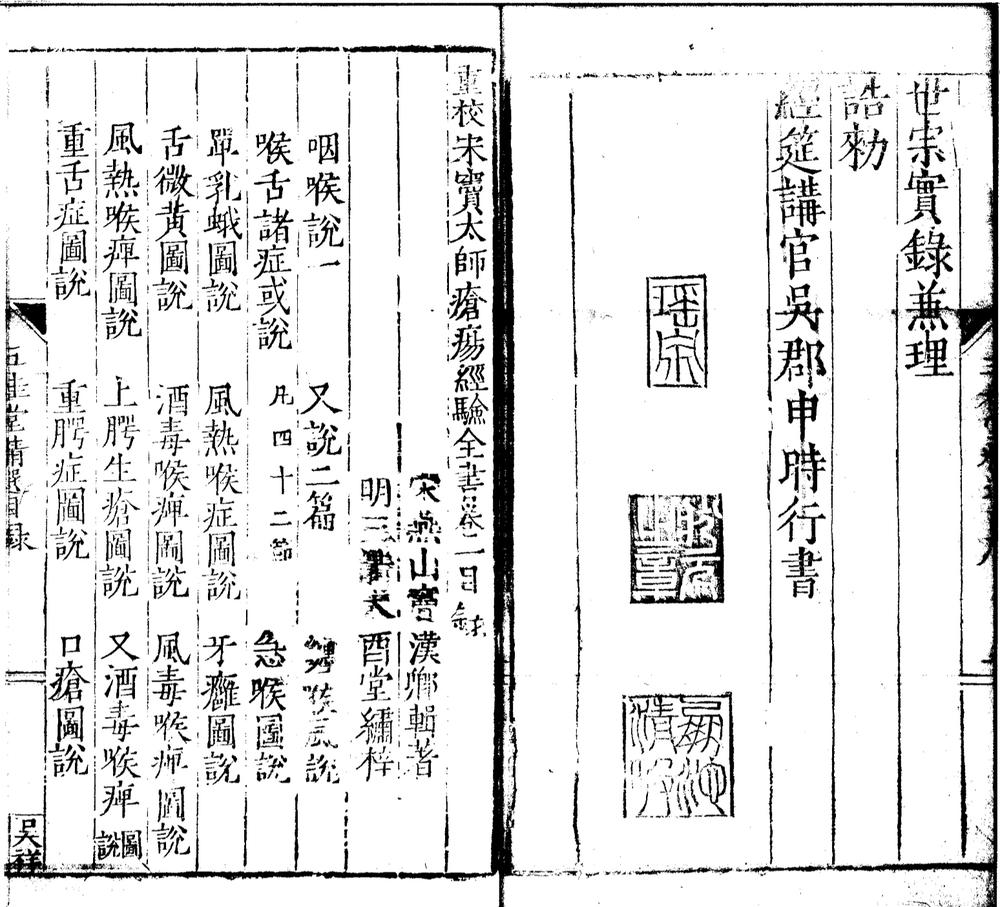 世宗實錄蕪理
誥勑
經筵講官吳郡申時行書
瑶泉
重校宋竇太師瘡瘍經驗全書卷二目錄
宋燕山竇漢卿輯著
明三衢大酉堂繡梓
咽喉說一 又說二篇 纏喉風說
喉舌諸症或說 凡四十二節 急喉圖說
單乳蛾圖說 風熱喉症圖說 牙癰圖說
舌微黄圖說 酒毒喉痺圖說 風毒喉痺圖說
風熱喉痺圖說 上腭生瘡圖說 又酒毒喉痺圖說
重舌症圖說 重腭症圖說 口瘡圖說
吳祥